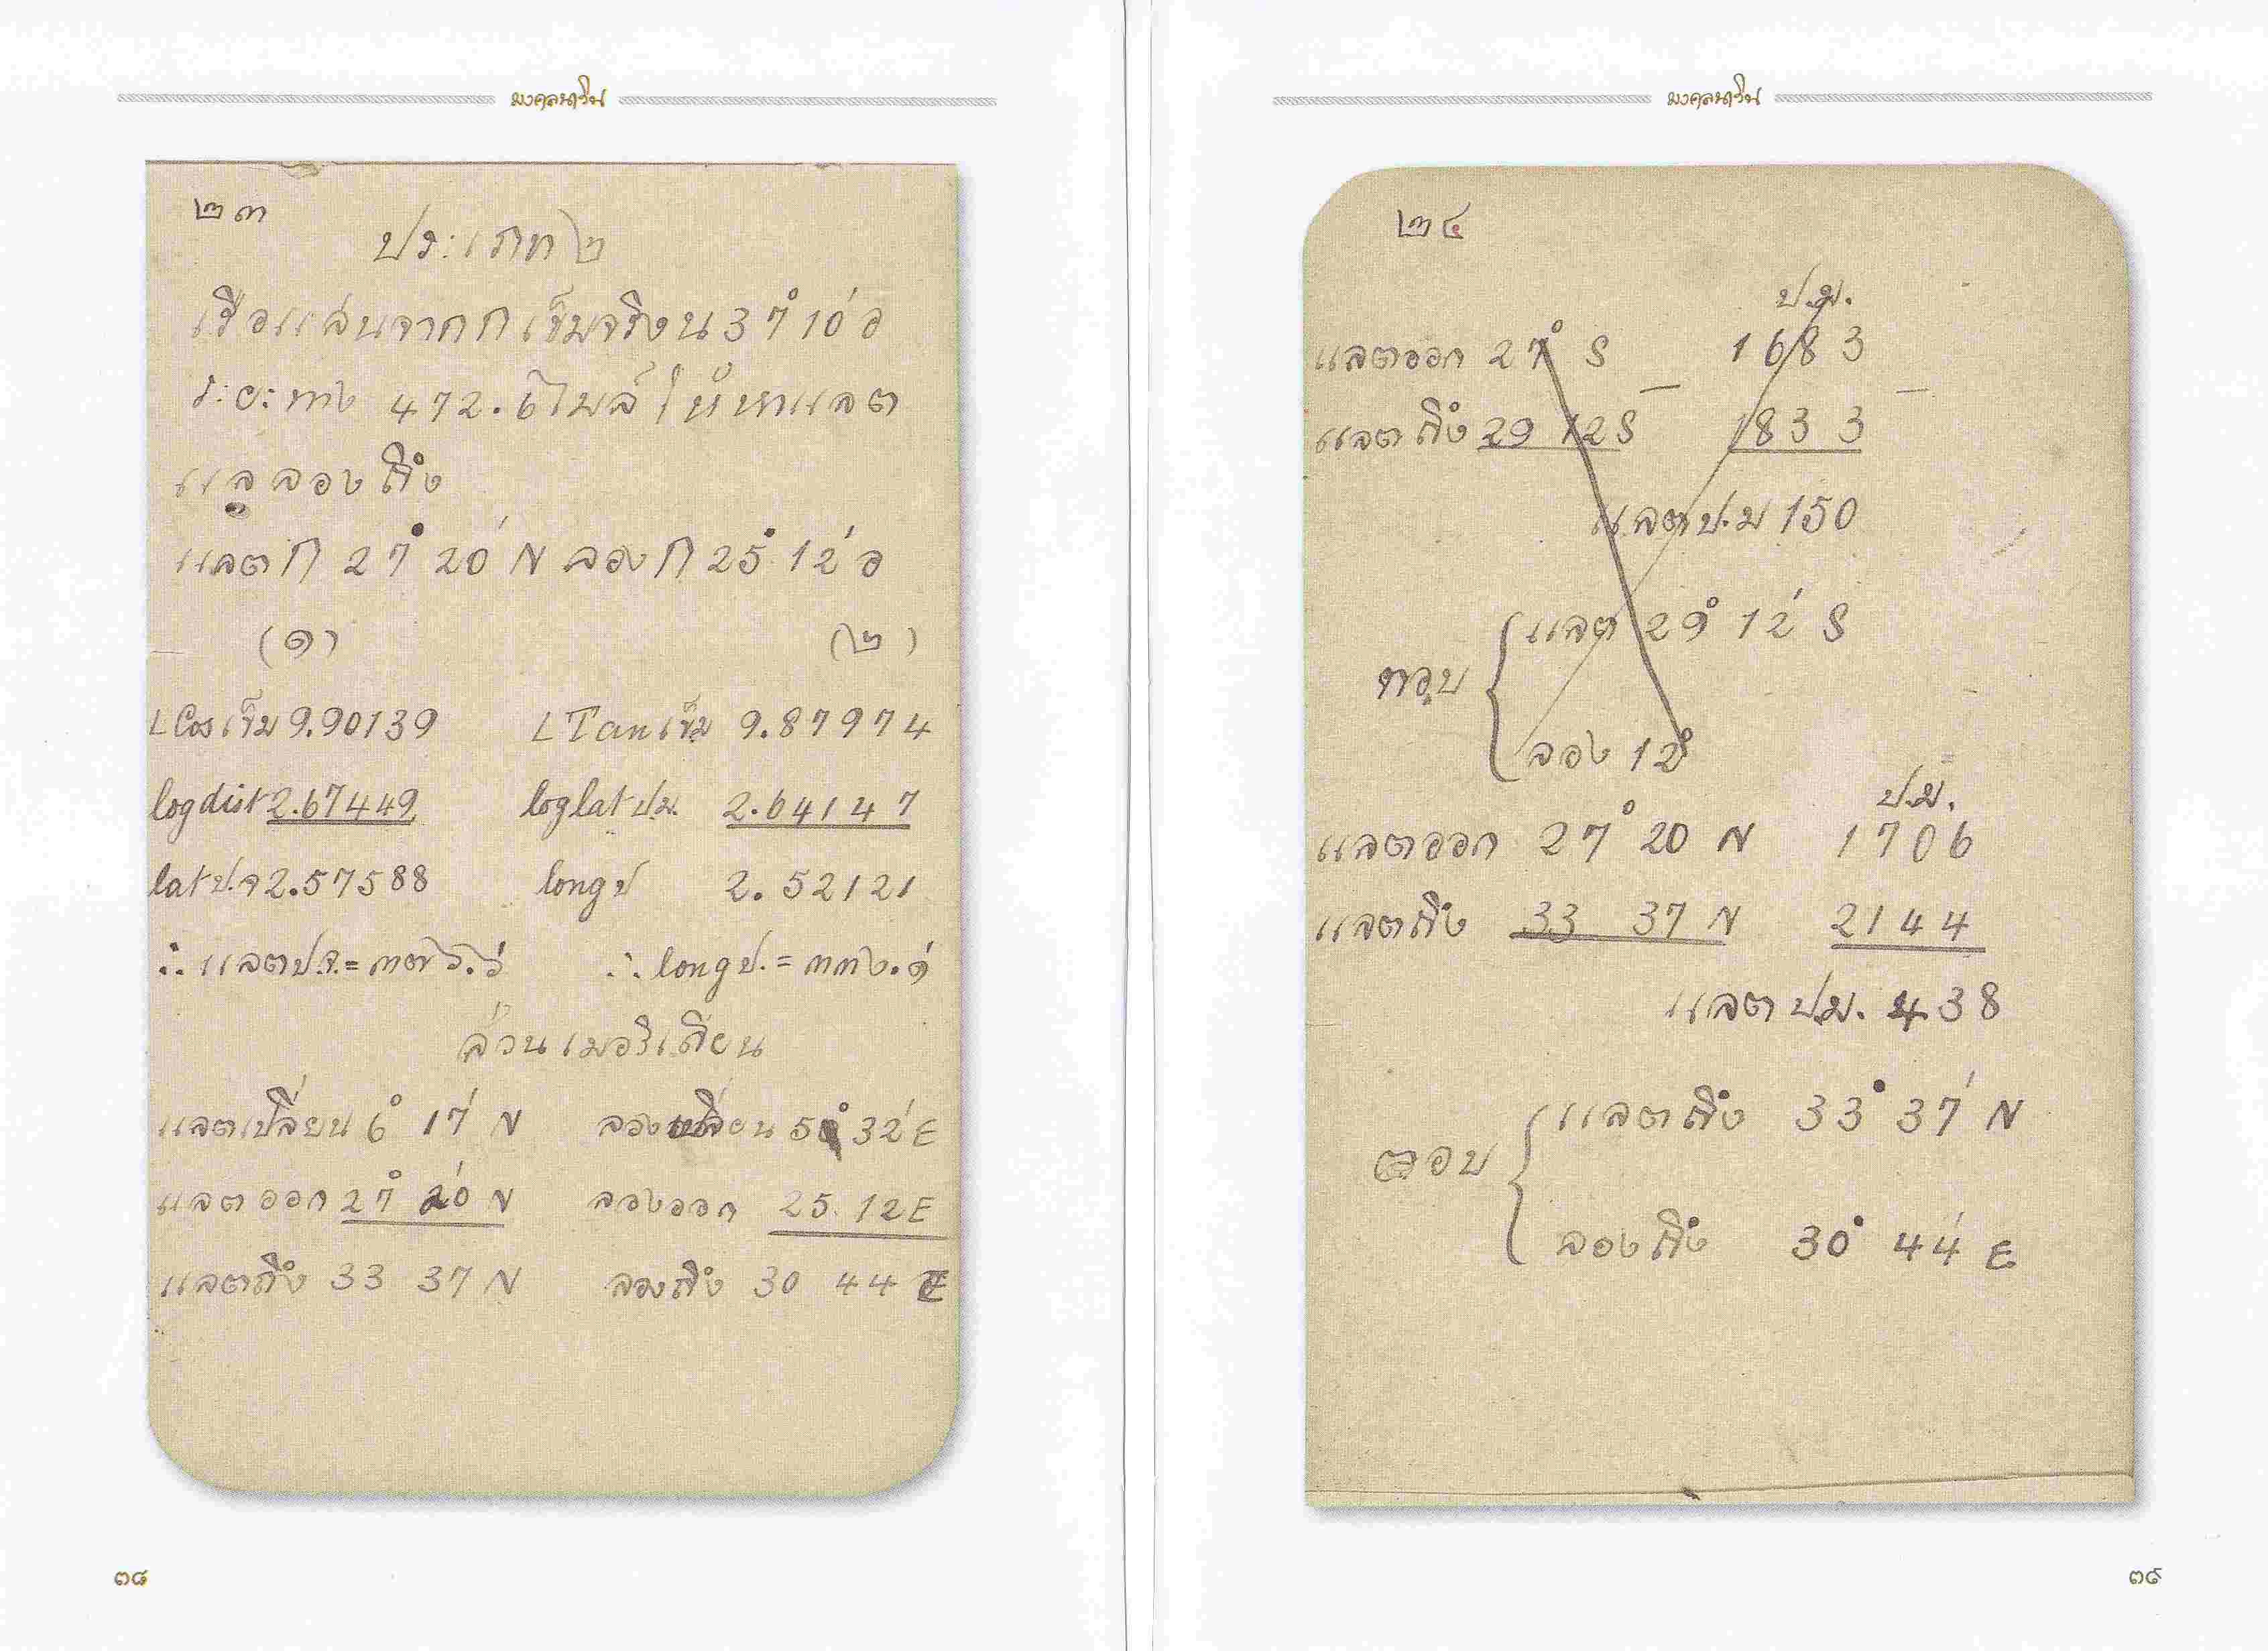 มงคลนาวิน
๒๓
ประเภท ๒
เรือแล่นจาก ก เข็มจริง น 37° 10' อ
ระยะทาง 472.6 ไมล์ ให้หาแลต
แลลองถึง
แลต ก 27° 20' N ลอง ก 25° 12' อ
(๑) (๒)
L Cos เข็ม 9.90139 L Tan เข็ม 9.87974
log dist 2.67449 log lat ป.ม. 2.64147
lat ป.จ 2.57588 long ป 2.52121
∴ แลต ป.จ. = ๓๗๖.๖ ∴ long ป. = ๓๓๒.๑
ส่วนเมอริเดียน
แลตเปลี่ยน 6° 17' N ลองเปลี่ยน 5° 32' E
แลตออก 27° 20' N ลองออก 25 12 E
แลตถึง 33 37 N ลองถึง 30 44 E
๓๘
มงคลนาวิน
๒๔
ป.ม.
แลตออก 27° S 1683
แลตถึง 29 12 S 1833
แลต ป.ม 150
ตอบ { แลต 29° 12' S
ลอง 12°
ป.ม.
แลตออก 27° 20 N 1706
แลตถึง 33 37 N 2144
แลต ป.ม. 438
ตอบ { แลตถึง 33° 37' N
ลองถึง 30° 44' E
๓๙